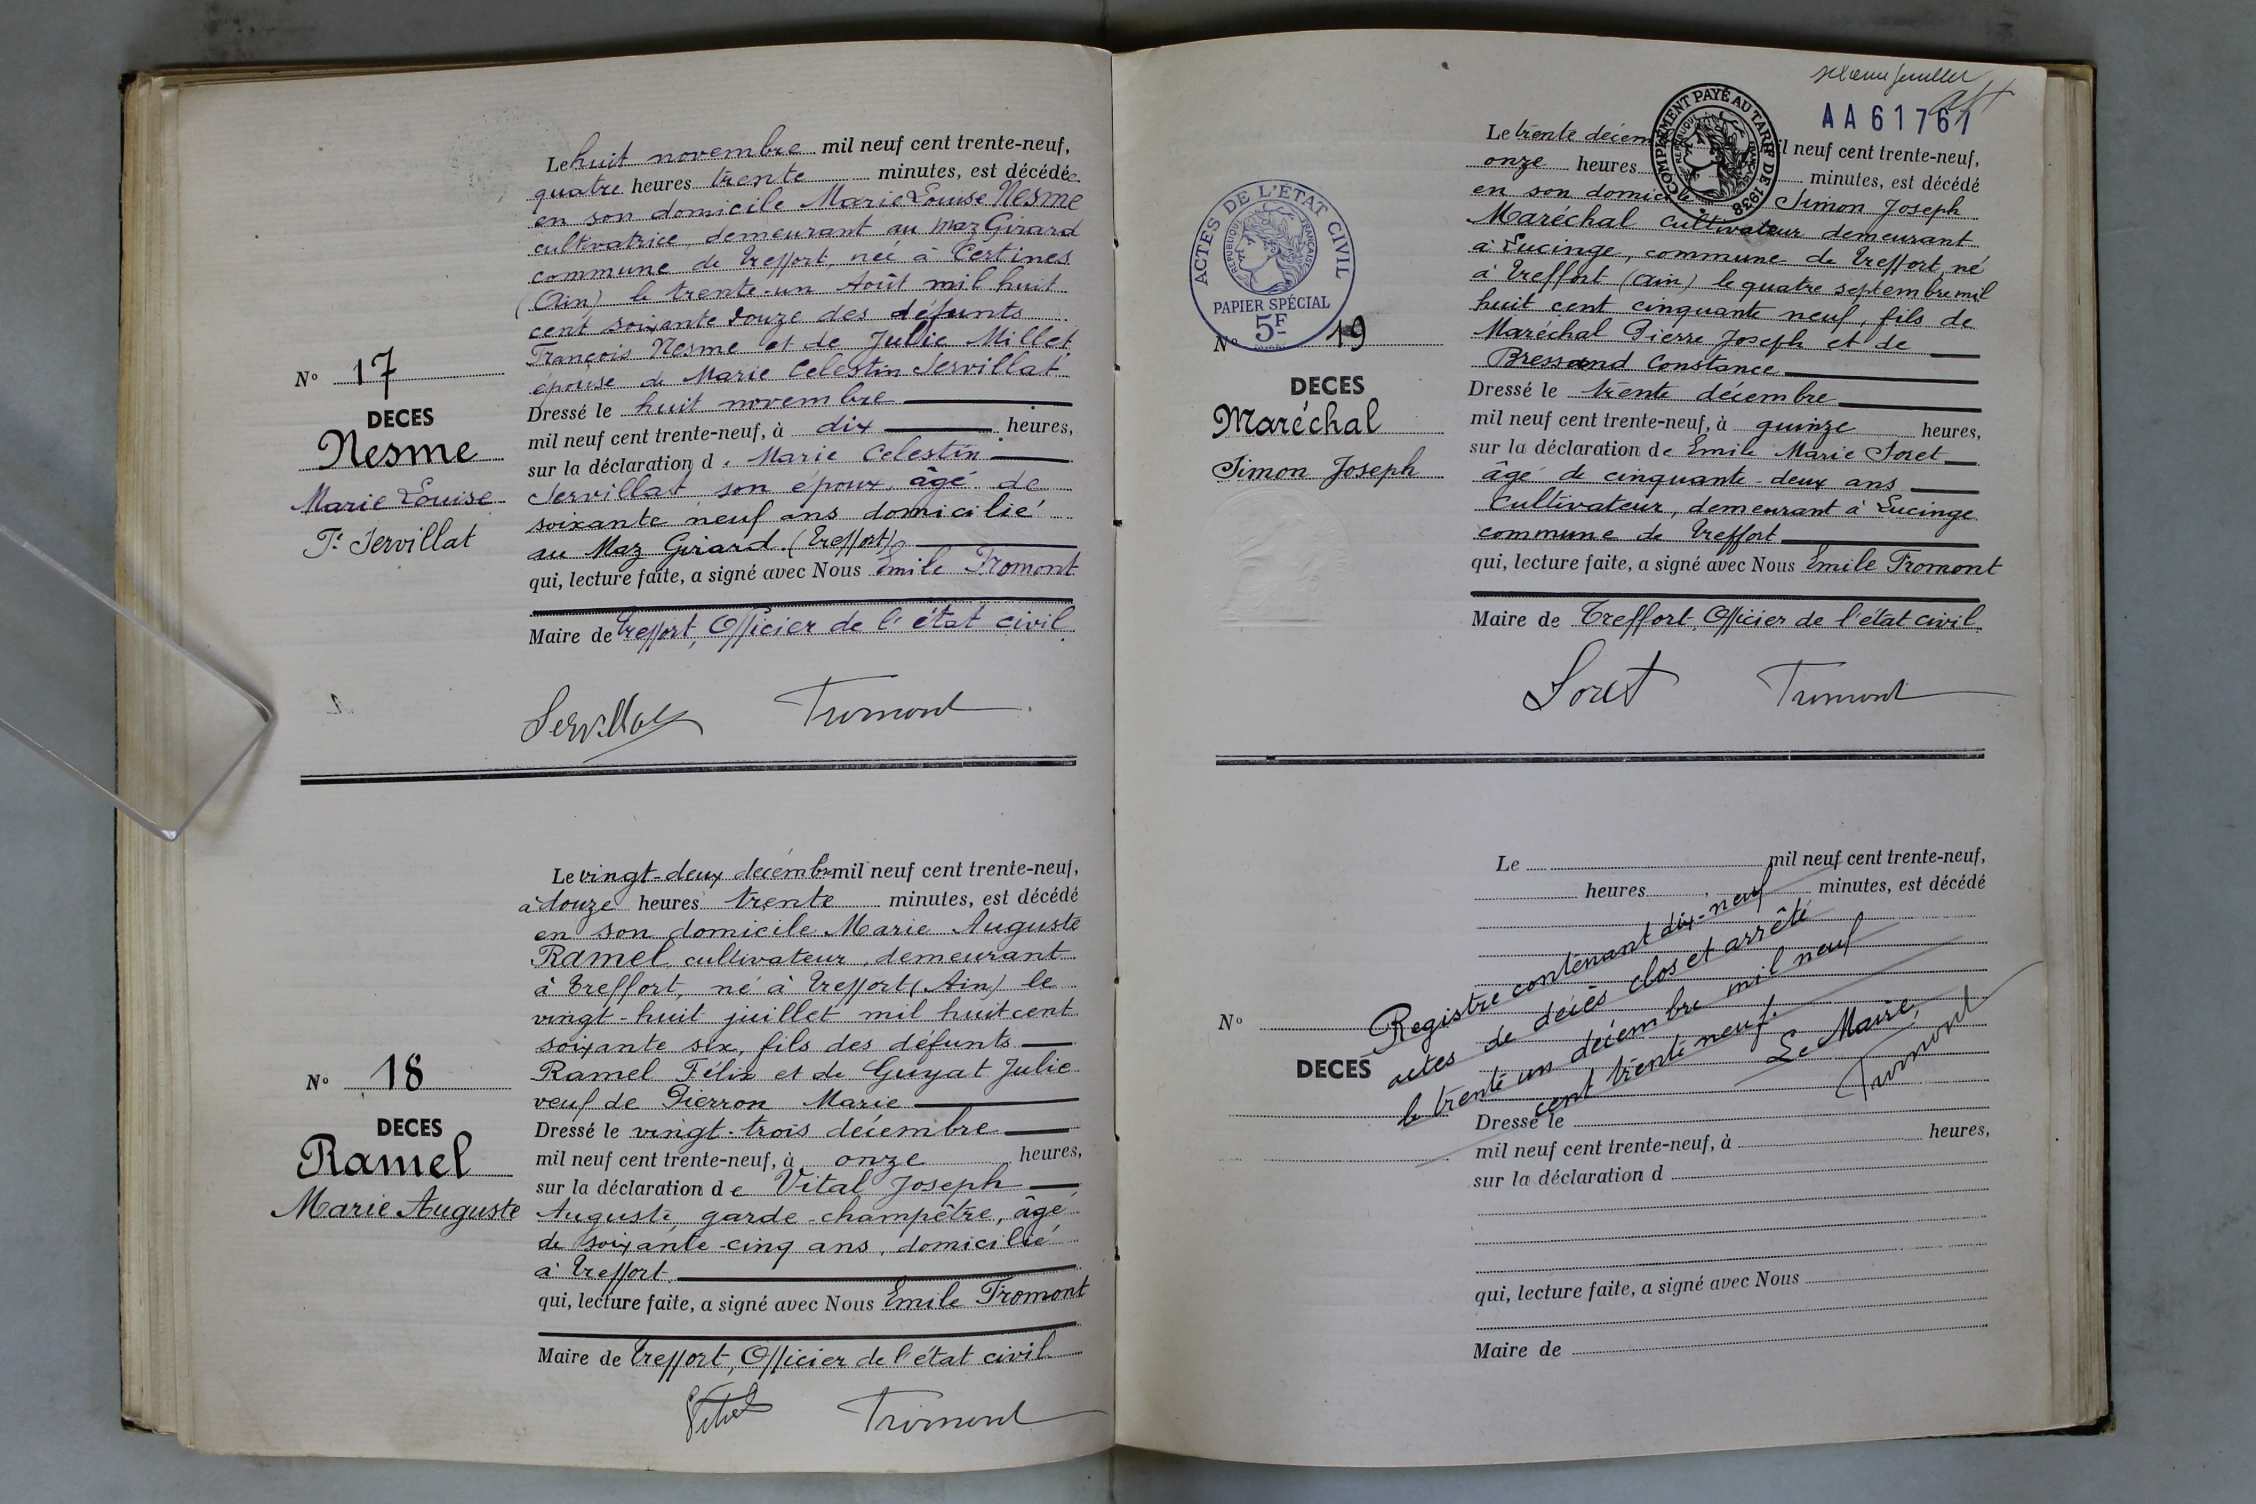 Le huit novembre mil neuf cent trente-neuf,
quatre heures trente minutes, est décédée
en son domicile Marie Louise Nesme
cultivatrice, demeurant au Maz Girard
commune de Treffort, née à Certines
(Ain) le trente-un Août mil huit
cent soixante douze des défunts
François Nesme et de Julie Millet
épouse de Marie Celestin Servillat
Nº 17
DECES
Nesme
Marie Louise
Fe Servillat
Dressé le huit novembre
mil neuf cent trente-neuf, à dix heures,
sur la déclaration d. Marie Celestin
Servillat son époux âgé de
soixante neuf ans domicilié
au Maz Girard. (Treffort)
qui, lecture faite, a signé avec Nous Emile Fromont
Maire de Treffort, Officier de l'état civil
Servillat Fromont
Le vingt-deux décembre mil neuf cent trente-neuf,
à douze heures trente minutes, est décédé
en son domicile Marie Auguste
Ramel, cultivateur, demeurant
à Treffort, né à Treffort (Ain) le
vingt-huit juillet mil huit cent
soixante six, fils des défunts
Ramel Félix et de Guyat Julie
veuf de Pierron Marie
Nº 18
DECES
Ramel
Marie Auguste
Dressé le vingt-trois décembre
mil neuf cent trente-neuf, à onze heures,
sur la déclaration de Vital Joseph
Auguste, garde-champêtre, âgé
de soixante-cinq ans, domicilié
à Treffort.
qui, lecture faite, a signé avec Nous Emile Fromont
Maire de Treffort, Officier de l'état civil
Vital Fromont
AA 61761
COMPLÉMENT PAYÉ AU TARIF DE 1938
REPUBLIQUE FRANÇAISE
Le trente décem il neuf cent trente-neuf,
onze heures minutes, est décédé
en son domicile Simon Joseph
Maréchal cultivateur demeurant
à Lucinge, commune de Treffort, né
à Treffort (Ain) le quatre septembre mil
huit cent cinquante neuf, fils de
Maréchal Pierre Joseph et de
Bressand Constance
ACTES DE L'ETAT CIVIL
REPUBLIQUE FRANÇAISE
PAPIER SPÉCIAL
5F
Nº 19
DECES
Maréchal
Simon Joseph
Dressé le trente décembre
mil neuf cent trente-neuf, à quinze heures,
sur la déclaration de Emile Marie Soret
âgé de cinquante-deux ans
Cultivateur, demeurant à Lucinge
commune de Treffort
qui, lecture faite, a signé avec Nous Emile Fromont
Maire de Treffort, Officier de l'état civil
Soret Fromont
Le mil neuf cent trente-neuf,
heures minutes, est décédé
Registre contenant dix-neuf
actes de décès clos et arrêté
le trente un décembre mil neuf
cent trente neuf.
Le Maire,
Fromont
Nº
DECES
Dressé le
mil neuf cent trente-neuf, à heures,
sur la déclaration d
qui, lecture faite, a signé avec Nous
Maire de